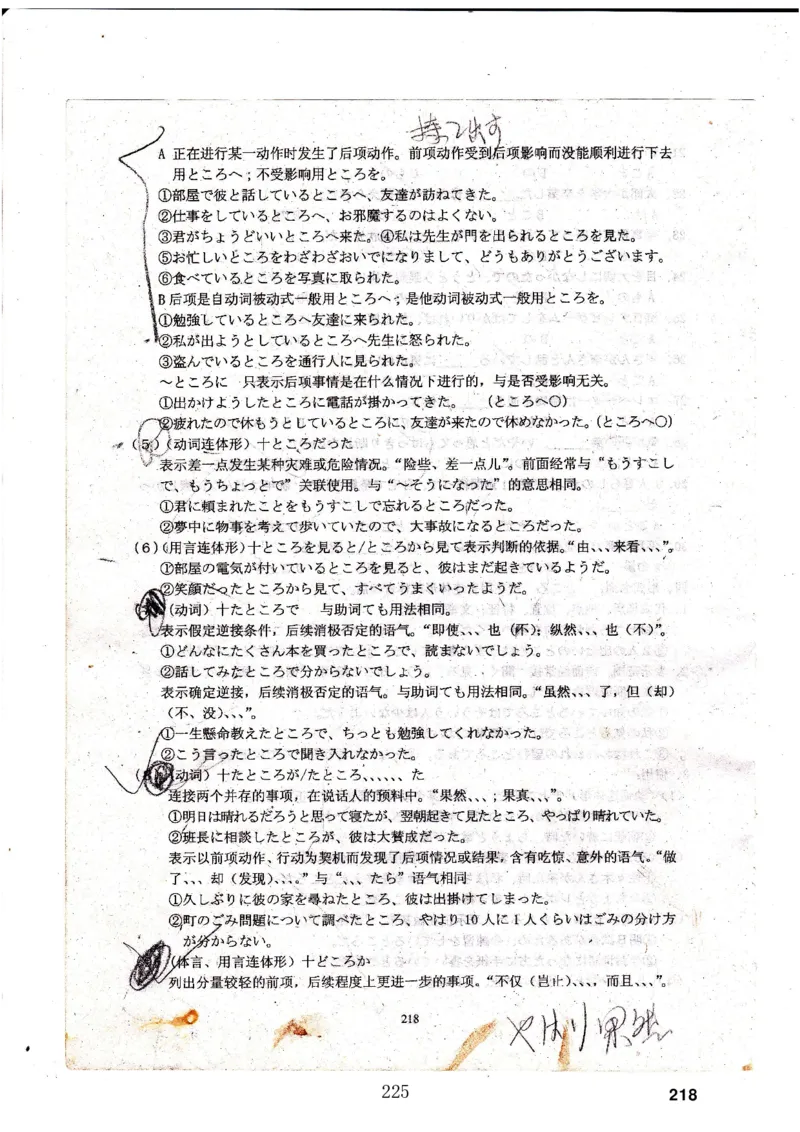 A 正在进行某一动作时发生了后项动作。前项动作受到后项影响而没能顺利进行下去
用ところへ；不受影响用ところを。
①部屋で彼と話しているところへ、友達が訪ねてきた。
②仕事をしているところへ、お邪魔するのはよくない。
③君がちょうどいいところへ来た。④私は先生が門を出られるところを見た。
⑤お忙しいところをわざわざおいでになりまして、どうもありがとうございます。
⑥食べているところを写真に取られた。
B 后项是自动词被动式一般用ところへ；是他动词被动式一般用ところを。
①勉強しているところへ友達に来られた。
②私が出ようとしているところへ先生に怒られた。
③盗んでいるところを通行人に見られた。
～ところに 只表示后项事情是在什么情况下进行的，与是否受影响无关。
①出かけようしたところに電話が掛かってきた。 （ところへ〇）
②疲れたので休もうとしているところに、友達が来たので休めなかった。（ところへ〇）
（5）（动词连体形）十ところだった
表示差一点发生某种灾难或危险情况。“险些、差一点儿”。前面经常与“もうすこし
で、もうちょっとで”关联使用。与“～そうになった”的意思相同。
①君に頼まれたことをもうすこしで忘れるところだった。
②夢中に物事を考えて歩いていたので、大事故になるところだった。
（6）（用言连体形）十ところを見ると/ところから見て表示判断的依据。“由、、、来看、、、”。
①部屋の電気が付いているところを見ると、彼はまだ起きているようだ。
②笑顔だったところから見て、すべてうまくいったようだ。
（动词）十たところで 与助词ても用法相同。
表示假定逆接条件，后续消极否定的语气。“即使、、、也（不）；纵然、、、也（不）”。
①どんなにたくさん本を買ったところで、読まないでしょう。
②話してみたところで分からないでしょう。
表示确定逆接，后续消极否定的语气。与助词ても用法相同。“虽然、、、了，但（却）
（不、没）、、、”。
①一生懸命教えたところで、ちっとも勉強してくれなかった。
②こう言ったところで聞き入れなかった。
（动词）十たところが/たところ、、、、、、た
连接两个并存的事项，在说话人的预料中。“果然、、、；果真、、、”。
①明日は晴れるだろうと思って寝たが、翌朝起きて見たところ、やっぱり晴れていた。
②班長に相談したところが、彼は大賛成だった。
表示以前项动作、行动为契机而发现了后项情况或结果，含有吃惊、意外的语气。“做
了、、、却（发现）、、、。”与“、、、たら”语气相同
①久しぶりに彼の家を尋ねたところ、彼は出掛けてしまった。
②町のごみ問題について調べたところ、やはり10人に1人くらいはごみの分け方
が分からない。
（体言、用言连体形）十どころか
列出分量较轻的前项，后续程度上更进一步的事项。“不仅（岂止）、、、，而且、、、”。
218
やはり 果然
225
218